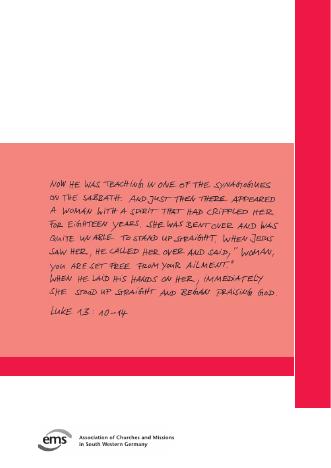 NOW HE WAS TEACHING IN ONE OF THE SYNAGOGUES
ON THE SABBATH. AND JUST THEN THERE APPEARED
A WOMAN WITH A SPIRIT THAT HAD CRIPPLED HER
FOR EIGHTEEN YEARS. SHE WAS BENT OVER AND WAS
QUITE UNABLE TO STAND UP STRAIGHT. WHEN JESUS
SAW HER, HE CALLED HER OVER AND SAID, "WOMAN,
YOU ARE SET FREE FROM YOUR AILMENT."
WHEN HE LAID HIS HANDS ON HER, IMMEDIATELY
SHE STOOD UP STRAIGHT AND BEGAN PRAISING GOD.
LUKE 13: 10-14
ems
Association of Churches and Missions
in South Western Germany